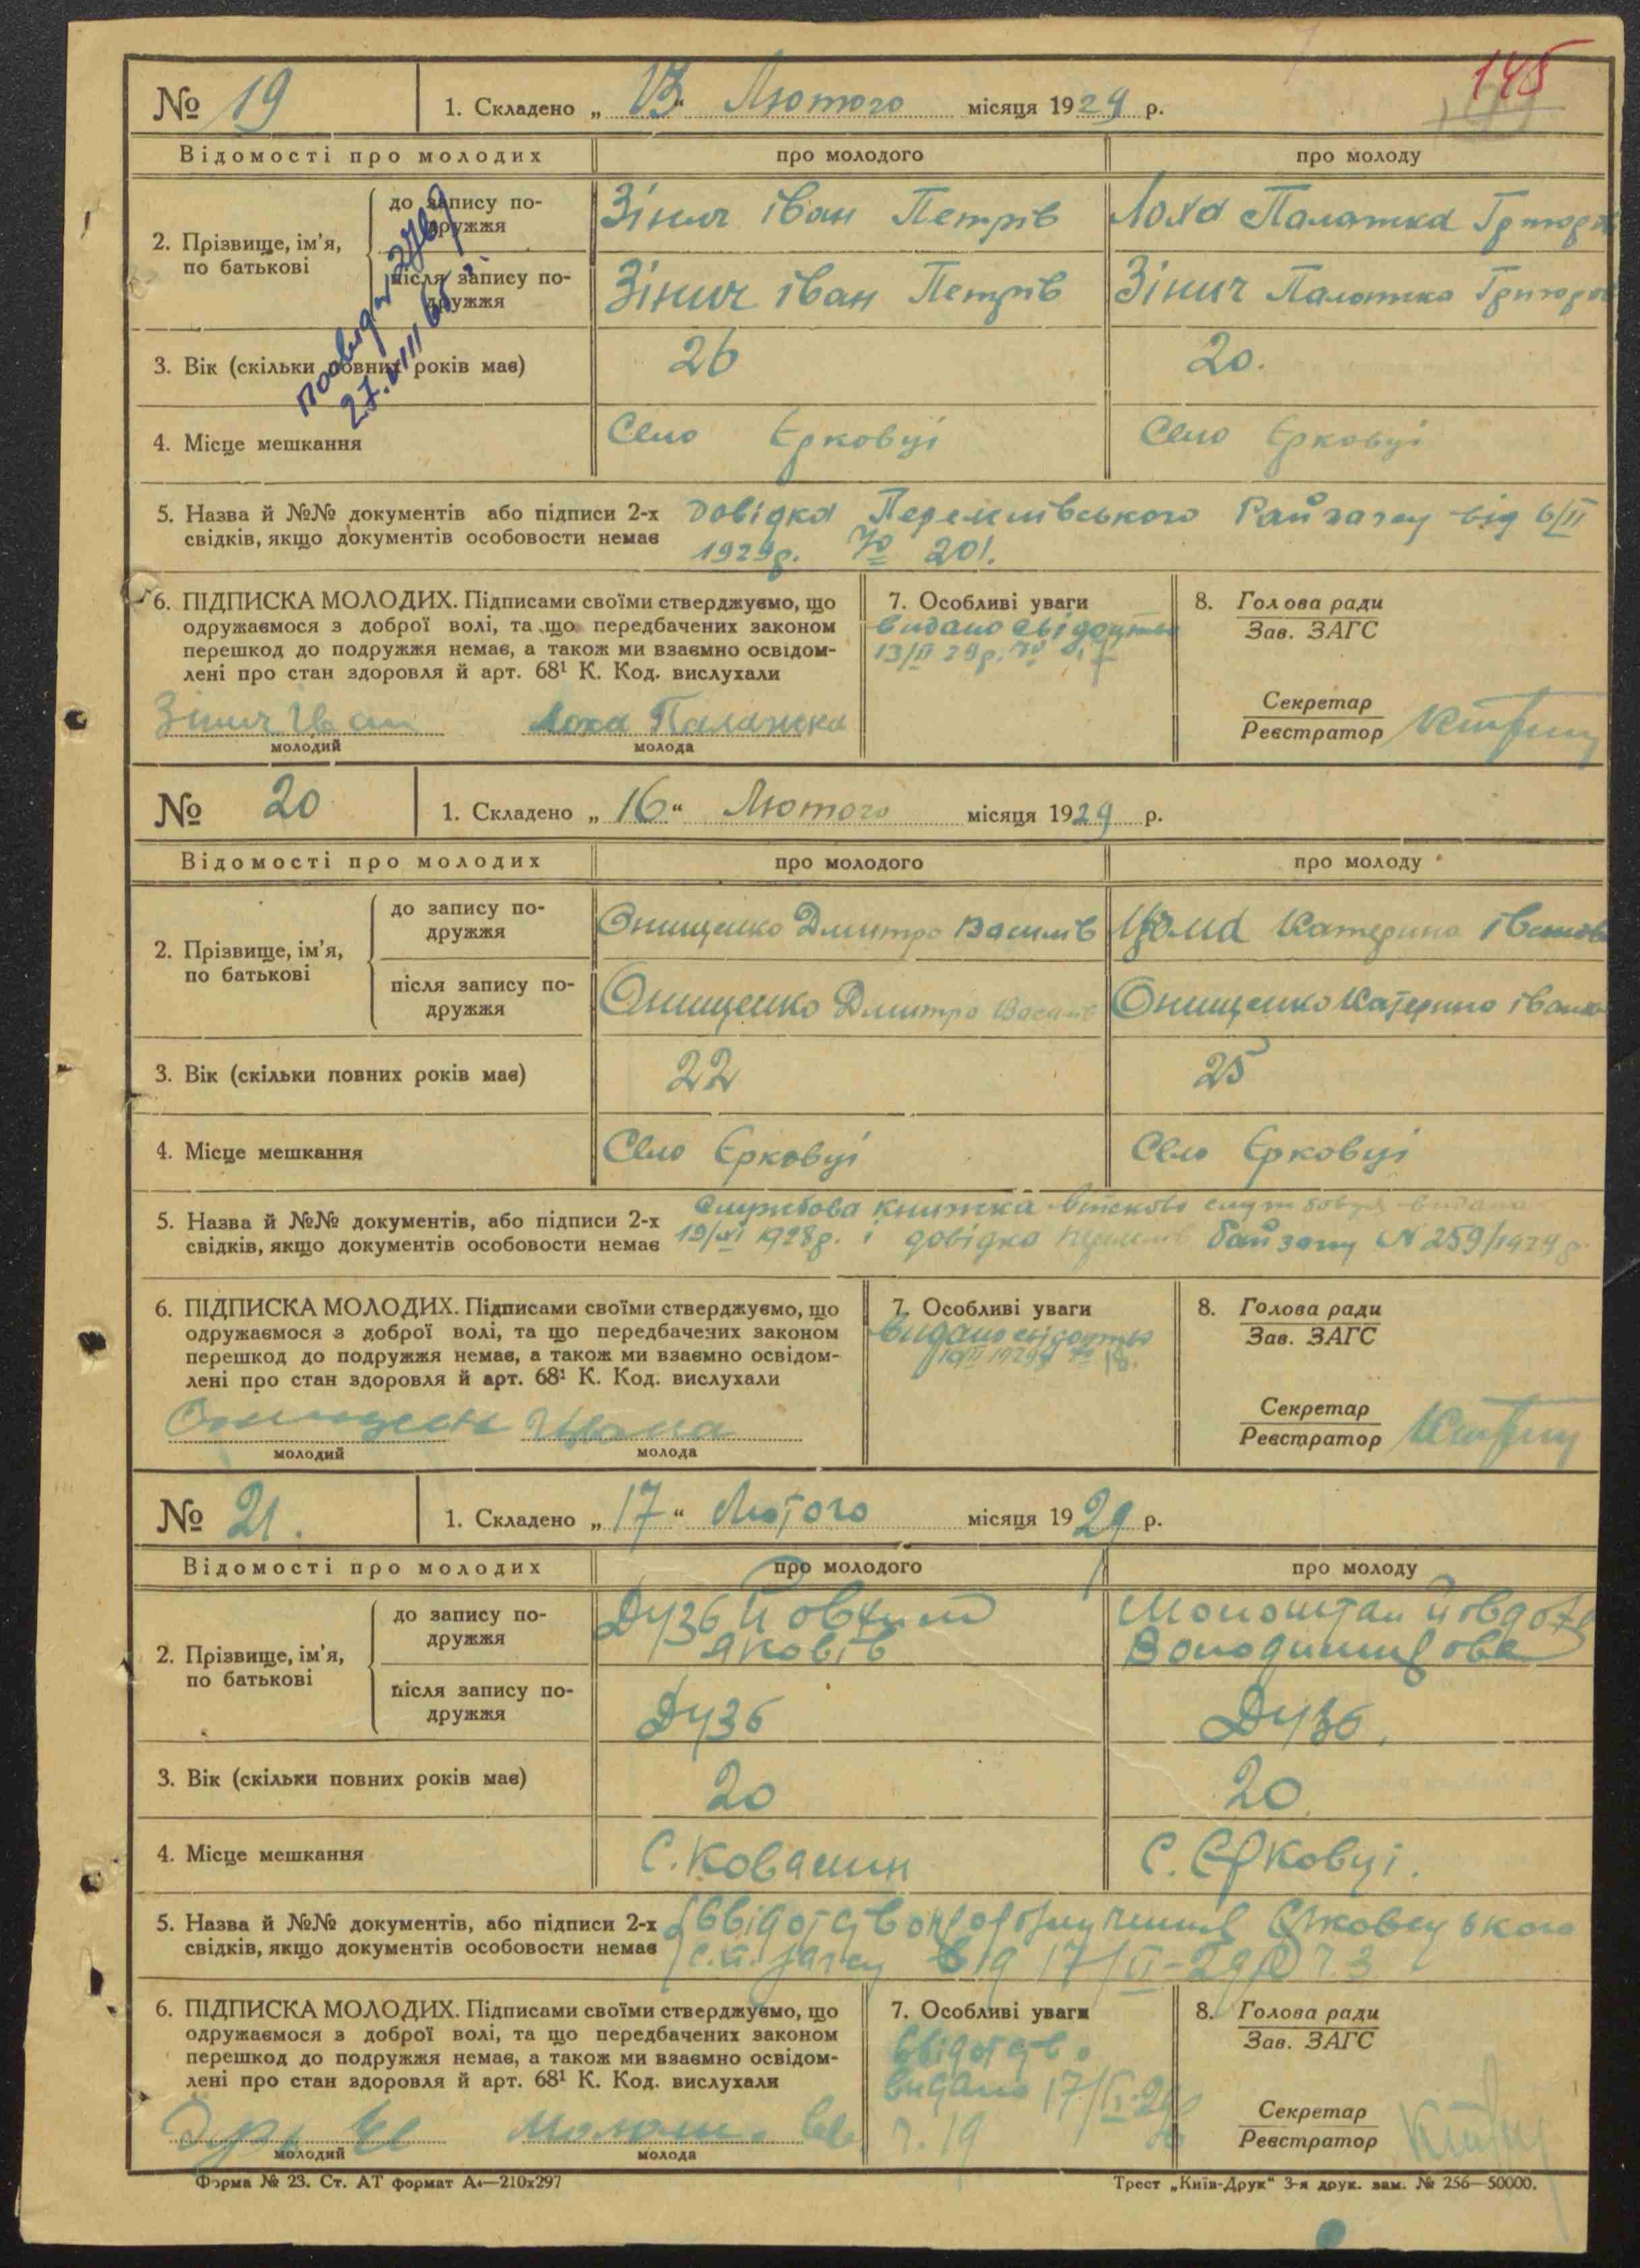 145
№ 19
1. Складено „ 13 “ Лютого місяця 1929 р.
Відомості про молодих
про молодого
про молоду
2. Прізвище, ім'я, по батькові
до запису по-
дружжя
Зінич Іван Петрів
Лоха Палажка Григоров
після запису по-
дружжя
Зінич Іван Петрів
Зінич Палажка Григоров
27.VIII 65
3. Вік (скільки повних років має)
26
20.
4. Місце мешкання
Село Єрковці
Село Єрковці
5. Назва й №№ документів або підписи 2-х
свідків, якщо документів особовости немає
Довідка Райзагсу від 6/II
1929р. № 201.
6. ПІДПИСКА МОЛОДИХ. Підписами своїми стверджуємо, що
одружаємося з доброї волі, та що передбачених законом
перешкод до подружжя немає, а також ми взаємно освідом-
лені про стан здоровля й арт. 68¹ К. Код. вислухали
Зінич Іван
Лоха Палажка
молодий
молода
7. Особливі уваги
видано свідоцтво
13/II 29р. № 17
8. Голова ради
Зав. ЗАГС
Секретар
Реєстратор
№ 20
1. Складено „ 16 “ Лютого місяця 1929 р.
Відомості про молодих
про молодого
про молоду
2. Прізвище, ім'я, по батькові
до запису по-
дружжя
Онищенко Дмитро Василів
Катерина Іванов
після запису по-
дружжя
Онищенко Дмитро Василів
Онищенко Катерина Іванов
3. Вік (скільки повних років має)
22
25
4. Місце мешкання
Село Єрковці
Село Єрковці
5. Назва й №№ документів, або підписи 2-х
свідків, якщо документів особовости немає
Службова книжка видана
19/XI 1928р. і довідка Райзагсу № 259/1929р.
6. ПІДПИСКА МОЛОДИХ. Підписами своїми стверджуємо, що
одружаємося з доброї волі, та що передбачених законом
перешкод до подружжя немає, а також ми взаємно освідом-
лені про стан здоровля й арт. 68¹ К. Код. вислухали
молодий
молода
7. Особливі уваги
видано свідоцтво
16/II 1929р № 18.
8. Голова ради
Зав. ЗАГС
Секретар
Реєстратор
№ 21.
1. Складено „ 17 “ Лютого місяця 1929 р.
Відомості про молодих
про молодого
про молоду
2. Прізвище, ім'я, по батькові
до запису по-
дружжя
Дузь
Яковів
Йовдоха
Володимирова
після запису по-
дружжя
Дузь
Дузь.
3. Вік (скільки повних років має)
20
20
4. Місце мешкання
С. Ковалин
С. Єрковці.
5. Назва й №№ документів, або підписи 2-х
свідків, якщо документів особовости немає
від 17/II-29р ч. 3
6. ПІДПИСКА МОЛОДИХ. Підписами своїми стверджуємо, що
одружаємося з доброї волі, та що передбачених законом
перешкод до подружжя немає, а також ми взаємно освідом-
лені про стан здоровля й арт. 68¹ К. Код. вислухали
молодий
молода
7. Особливі уваги
видано 17/II-29р
ч. 19
8. Голова ради
Зав. ЗАГС
Секретар
Реєстратор
Форма № 23. Ст. АТ формат А4—210х297
Трест „Київ-Друк“ 3-я друк. зам. № 256—50000.